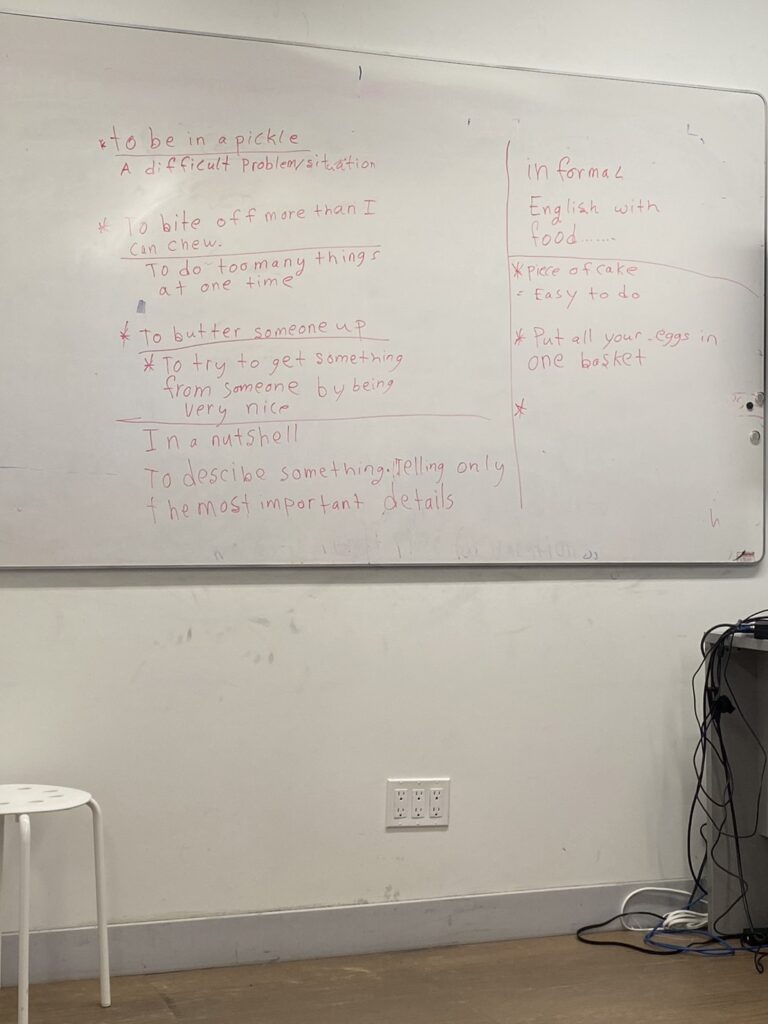 * to be in a pickle
A difficult Problem/situation
* To bite off more than I
can chew.
To do too many things
at one time
* To butter someone up
* To try to get something
from someone by being
very nice
In a nutshell
To descibe something. Telling only
the most important details
informal
English with
food.......
* piece of cake
= Easy to do
* Put all your eggs in
one basket
*